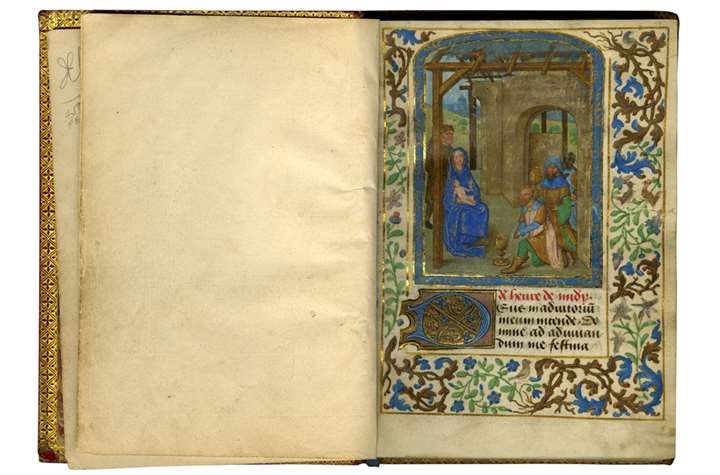 heure de midy.
Deus in adiutoriū
meum intende. Do
mine ad adiuuan
dum me festina